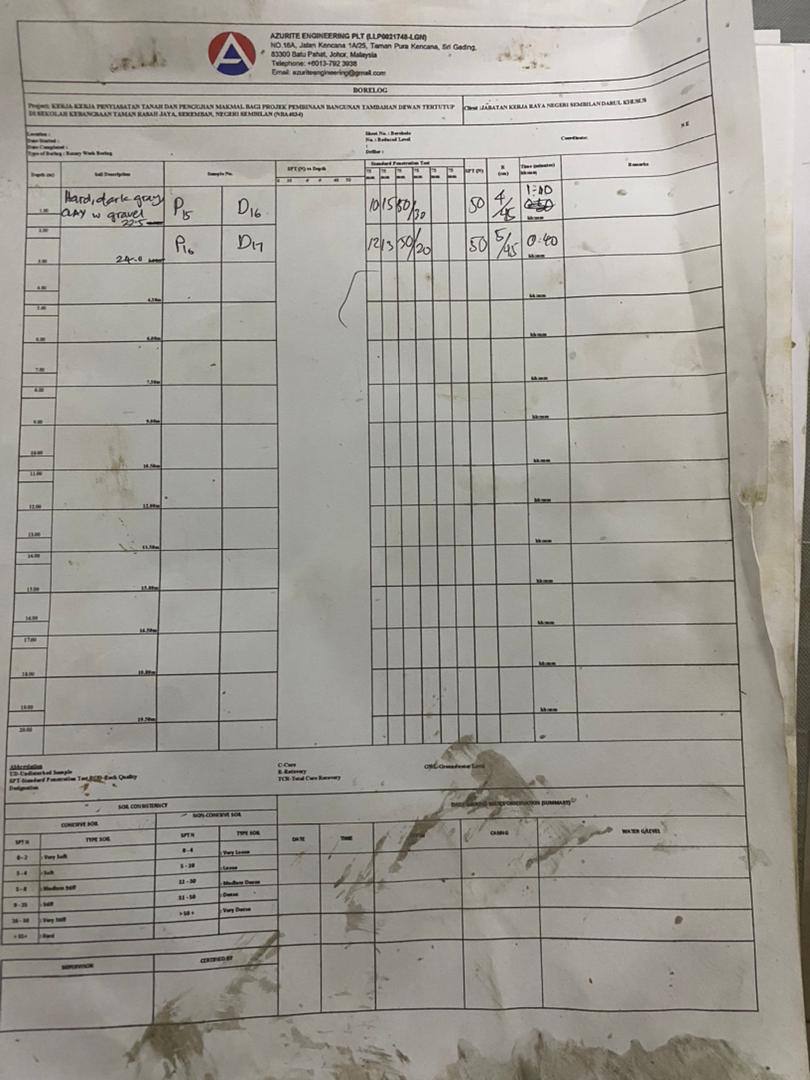 AZURITE ENGINEERING PLT (LLP0021748-LGN)
NO.16A, Jalan Kencana 1A/25, Taman Pura Kencana, Sri Gading,
83300 Batu Pahat, Johor, Malaysia
Telephone: +6013-792 3938
Email: azuriteengineering@gmail.com
BORELOG
Project: KERJA-KERJA PENYIASATAN TANAH DAN PENGUJIAN MAKMAL BAGI PROJEK PEMBINAAN BANGUNAN TAMBAHAN DEWAN TERTUTUP
DI SEKOLAH KEBANGSAAN TAMAN RASAH JAYA, SEREMBAN, NEGERI SEMBILAN
Client :JABATAN KERJA RAYA NEGERI SEMBILAN DARUL KHUSUS
Location :
Date Started :
Date Completed :
Type of Boring : Rotary Wash Boring
Sheet No. : Borehole
No. : Reduced Level
:
Driller :
Coordinate:
N E
Depth (m) Soil Description Sample No. SPT (N) vs Depth Standard Penetration Test SPT (N) R (cm) Time (minutes) hh:mm Remarks
75 mm 75 mm 75 mm 75 mm 75 mm 75 mm
Hard, dark gray P15 D16 10 15 50/30 50 4/45 1:10
1.00 CLAY w gravel
22.5 hh:mm
2.00 P16 D17 12 13 50/20 50 5/45 0:40
3.00 24.0 hh:mm
4.00
4.50m hh:mm
5.00
6.00 6.00m hh:mm
7.00
7.50m hh:mm
8.00
9.00 9.00m hh:mm
10.00
10.50m hh:mm
11.00
12.00 12.00m hh:mm
13.00
13.50m hh:mm
14.00
15.00 15.00m hh:mm
16.00
16.50m hh:mm
17.00
18.00 18.00m hh:mm
19.00
19.50m hh:mm
20.00
Abbreviation
UD-Undisturbed Sample
SPT-Standard Penetration Test RQD-Rock Quality
Designation
C-Core
R-Recovery
TCR-Total Core Recovery
GWL-Groundwater Level
SOIL CONSISTENCY
COHESIVE SOIL NON-COHESIVE SOIL
SPT N TYPE SOIL SPT N TYPE SOIL
0-2 : Very Soft 0-4 : Very Loose
3-4 : Soft : Loose
5-8 : Medium Stiff : Medium Dense
: Stiff 31-50 : Dense
: Very Stiff >50+ : Very Dense
: Hard
(SUMMARY)
DATE TIME CASING WATER G/LEVEL
SUPERVISOR CERTIFIED BY